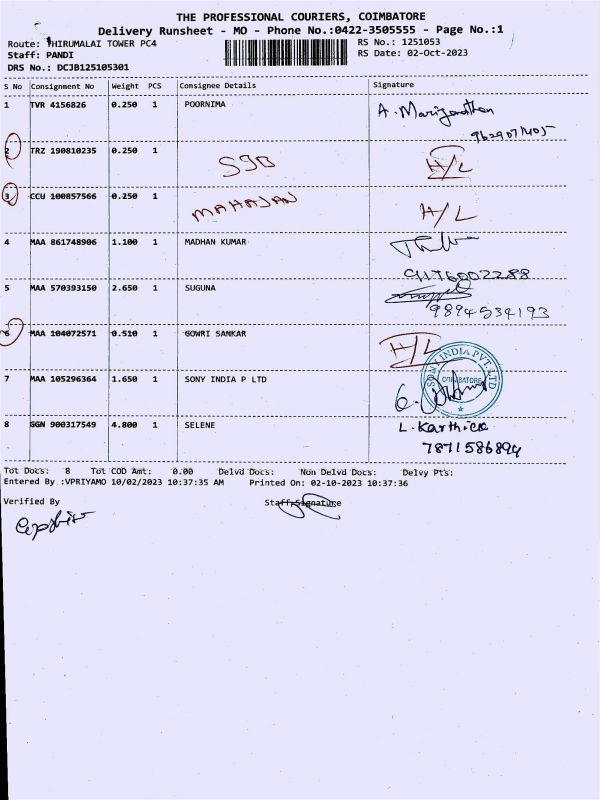 THE PROFESSIONAL COURIERS, COIMBATORE
Delivery Runsheet - MO - Phone No.:0422-3505555 - Page No.:1
Route: THIRUMALAI TOWER PC4
RS No.: 1251053
Staff: PANDI
RS Date: 02-Oct-2023
DRS No.: DCJB125105301
S No Consignment No Weight PCS Consignee Details Signature
1 TVR 4156826 0.250 1 POORNIMA
A. Marijonathan
9629071405
2 TRZ 190810235 0.250 1
SJB H/L
3 CCU 100857566 0.250 1
MAHAJAN H/L
4 MAA 861748906 1.100 1 MADHAN KUMAR
9176002288
5 MAA 570393150 2.650 1 SUGUNA
9894534193
6 MAA 104072571 0.510 1 GOWRI SANKAR
H/L
7 MAA 105296364 1.650 1 SONY INDIA P LTD
SONY INDIA PVT. LTD
COIMBATORE
8 GGN 900317549 4.800 1 SELENE
L. Karthick
7871586894
Tot Docs: 8 Tot COD Amt: 0.00 Delvd Docs: Non Delvd Docs: Delvy Pts:
Entered By :VPRIYAMO 10/02/2023 10:37:35 AM Printed On: 02-10-2023 10:37:36
Verified By Staff Signature